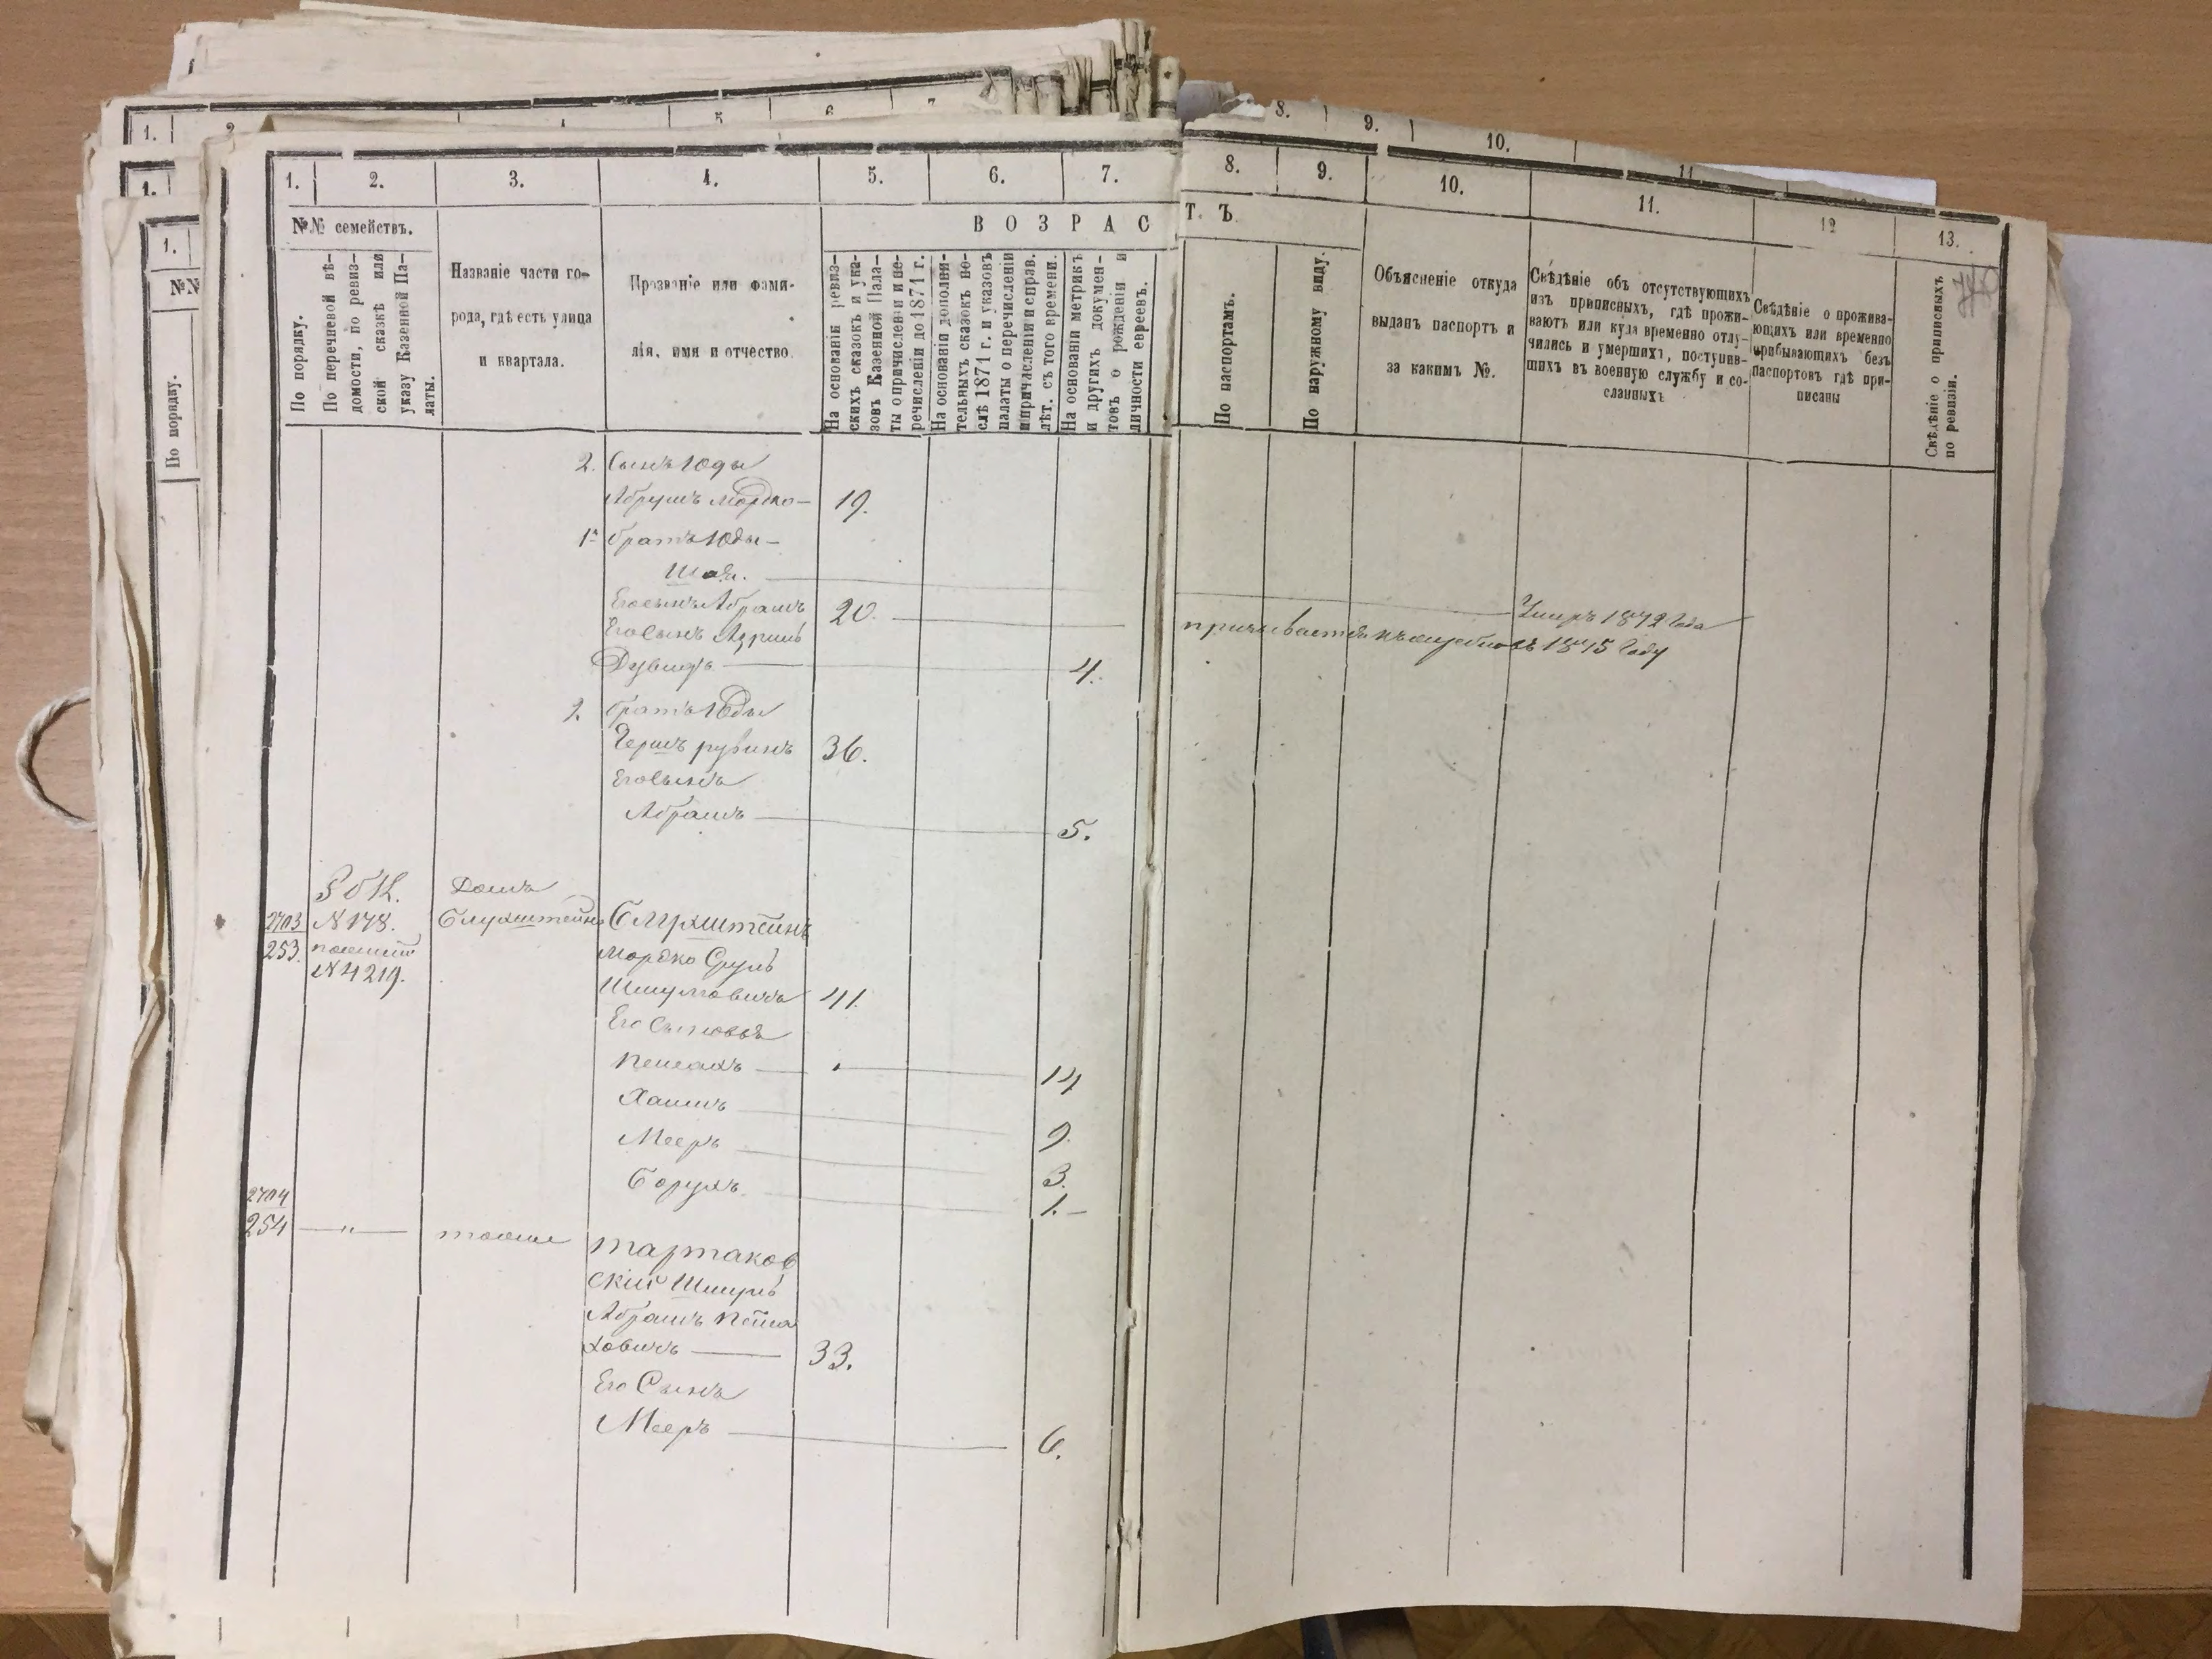 1. 2. 3. 4. 5. 6. 7. 8. 9. 10. 11. 12 13.
№№ семействъ.
По порядку.
По перечневой вѣ-
домости, по ревиз-
ской сказкѣ или
указу Казенной Па-
латы.
Названіе части го-
рода, гдѣ есть улица
и квартала.
Прозваніе или фами-
лія, имя и отчество.
ВОЗРАСТЪ
На основаніи ревиз-
скихъ сказокъ и ука-
зовъ Казенной Пала-
ты о причисленіи и пе-
речисленіи до 1871 г.
На основаніи дополни-
тельныхъ сказокъ по-
слѣ 1871 г. и указовъ
палаты о перечисленіи
и причисленіи и справ.
лѣт. съ того времени.
На основаніи метрикъ
и другихъ докумен-
товъ о рожденіи и
личности евреевъ.
По паспортамъ.
По наружному виду.
Объясненіе откуда
выданъ паспортъ и
за какимъ №.
Свѣдѣніе объ отсутствующихъ
изъ приписныхъ, гдѣ прожи-
ваютъ или куда временно отлу-
чились и умершихъ, поступив-
шихъ въ военную службу и со-
сланныхъ
Свѣдѣніе о прожива-
ющихъ или временно
прибывающихъ безъ
паспортовъ гдѣ при-
писаны
Свѣдѣніе о приписныхъ
по ревизіи.
2. Сынъ Юды
Мордко- 19.
1й братъ Юды-
Шая.
Его сынъ Абрамъ 20. Умеръ 1872 года
Его сынъ 1875 году
Дувидъ 4.
2. братъ Юды
Гершъ рувинъ 36.
Его сынъ
Абрамъ 5.
Домъ
2703 №178. Блуштейнъ Блуштейнъ
253.
Мордко Сруль
№4219.
Шмулевичъ 41.
Его Сыновья
Пейсахъ 14
Хаимъ 9.
Мееръ 3.
Борухъ 1.-
2704
254 " тоже Тартаков
скій Шмуль
Абрамъ Пейса
ховичъ 33.
Его Сынъ
Мееръ 6.